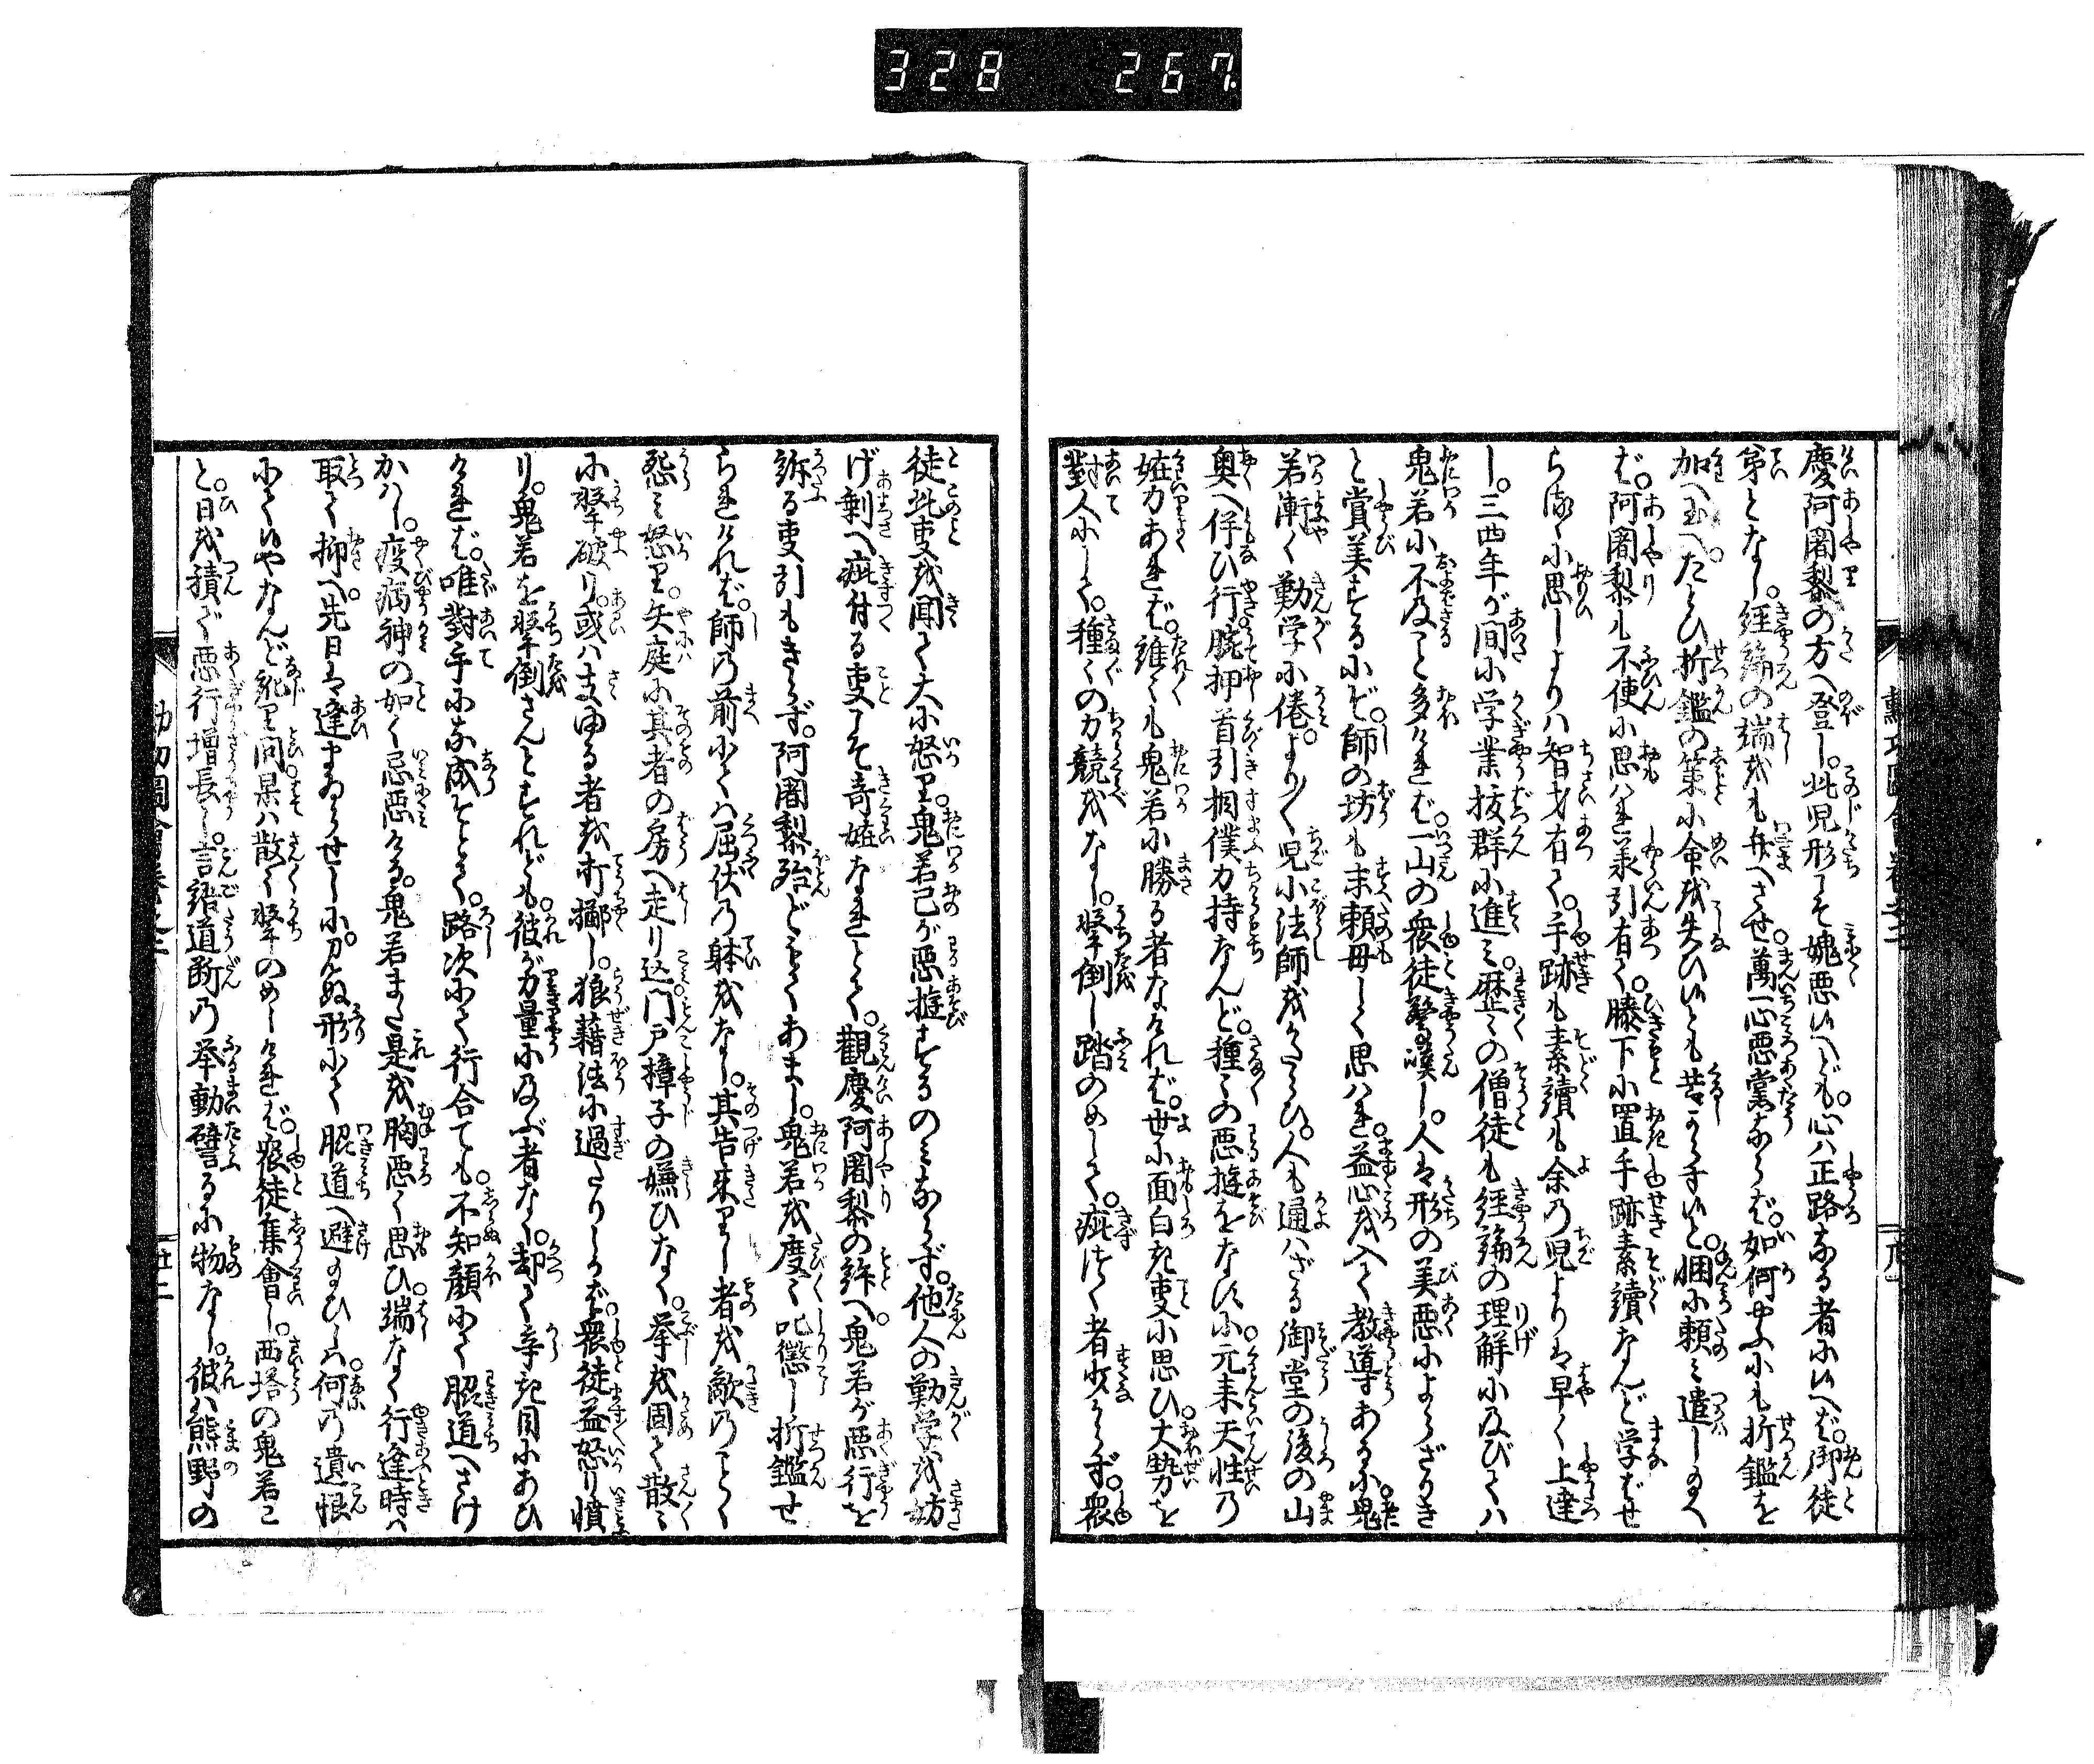 328 267
慶阿闍梨の方へ登し。此児形こそ媿悪けれども。心ハ正路なる者にいへバ。御徒
弟となし。経論の端をも弁へさせ。萬一心悪常ならバ。如何やふにも折鑑を
加へ玉へ。たとひ折鑑の策に命を失ひいとも苦からずいと。悃に頼ミ遣しける
バ。阿闍梨も不便に思ハれ承引有て。膝下に置手跡素讀なんど学バせ
らるゝに思しよりハ智才有て。手跡も素讀も余の児よりは早く上達
し。三四年が間に学業抜群に進ミ。歴々の僧徒も経論の理解に及びてハ
鬼若に不及こと多けれバ。一山の衆徒驚嘆し。人は形の美悪によらざりき
と賞美するにぞ。師の坊も末頼母しく思ハれ。益心を入て教導あるに鬼
若漸く勤学に倦。より〳〵児小法師をかたらひ。人も通ハざる御堂の後の山
奥へ伴ひ行。腕押首引相僕力持なんど。種々の悪遊をなすに。元来天性の
力あれバ。誰々も鬼若に勝る者なけれバ。世に面白き事に思ひ。大勢を
對人にして。種々の力競をなし。撃倒し踏のめして。疵つく者少からず。衆
徒此事を聞て大に怒り。鬼若己が悪遊するのミならず。他人の勤学を妨
げ剰へ疵付る事こそ奇なれとて。觀慶阿闍梨の許へ。鬼若が悪行を
訴る事引もきらず。阿闍梨殆どもてあまし。鬼若を度々叱懲し折鑑せ
られけれバ。師の前にてハ屈伏の躰をなし。其告来りし者を敵のことく
怨ミ怒り。矢庭に其者の房へ走り込。門戸樟子の嫌ひなく。拳を固て散々
に撃破り。或ハ支ゆる者を打擲し。狼藉法に過たりしかバ。衆徒益怒り憤
り。鬼若を撃倒さんとすれども。彼が力量に及ぶ者なく。却て辛き目にあひ
けれバ。唯對手にな成そとて。路次にて行合ても。不知顔にて脇道へさけ
かハし。疫病神の如く忌悪ける。鬼若また是を胸悪く思ひ。端なく行逢時ハ
取て抑へ。先日は達まゐらせしに。見ぬ形にて脇道へ避給ひしハ。何の遺恨
にていやなんど詑り問。果ハ散々撃のめしけれバ。衆徒集會し。西塔の鬼若こ
と。日を積で悪行増長し。言語道断の挙動譬るに物なし。彼ハ熊野の